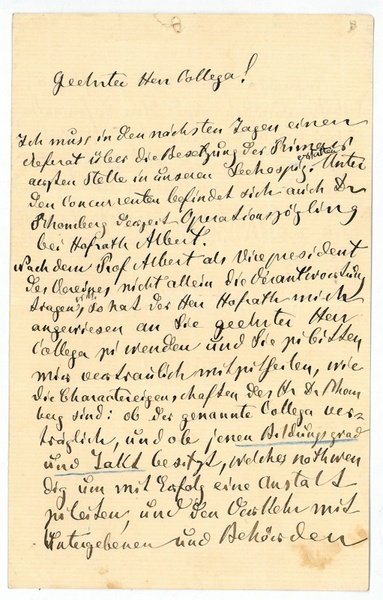 Geehrter Herr Collega!
Ich muss in den nächsten Tagen einen
Referat über die Besetzung der Primar
arzten Stelle in unseren Seehospiz erstatten. Unter
den Concurrenten befindet sich auch Dr
Rhomberg derzeit Operationszögling
bei Hofrath Albert.
Nachdem Prof Albert als Vicepresident
des Vereines nicht allein die Verantwortung
tragen will, so hat der Herr Hofrath mich
angewiesen an Sie geehrter Herr
Collega zu wenden und Sie zu bitten
mir vertraulich mitzutheilen, wie
die Charactereigenschaften des Hr Dr Rhom
berg sind: ob der genannte Collega ver-
träglich, und ob er jenen Bildungsgrad
und Takt besitzt, welches nothwen
dig um mit Erfolg eine Anstalt
zu leiten, und den Verkehr mit
Untergebenen und Behörden